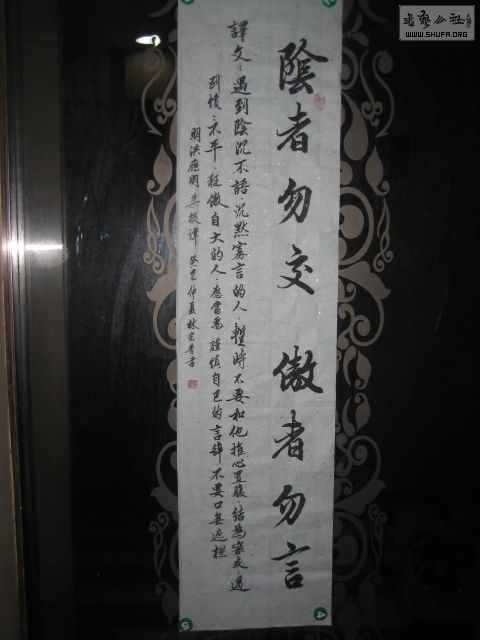 陰者勿交 傲者勿言
譯文：遇到陰沉不語，沉默寡言的人，暫時不要和他推心置腹，結為密友，遇
到憤憤不平，狂傲自大的人，應當要謹慎自己的言辭，不要口無遮攔
明洪應明 菜根譚 癸巳仲夏林宏香書
書藝公社
WWW.SHUFA.ORG
4
5